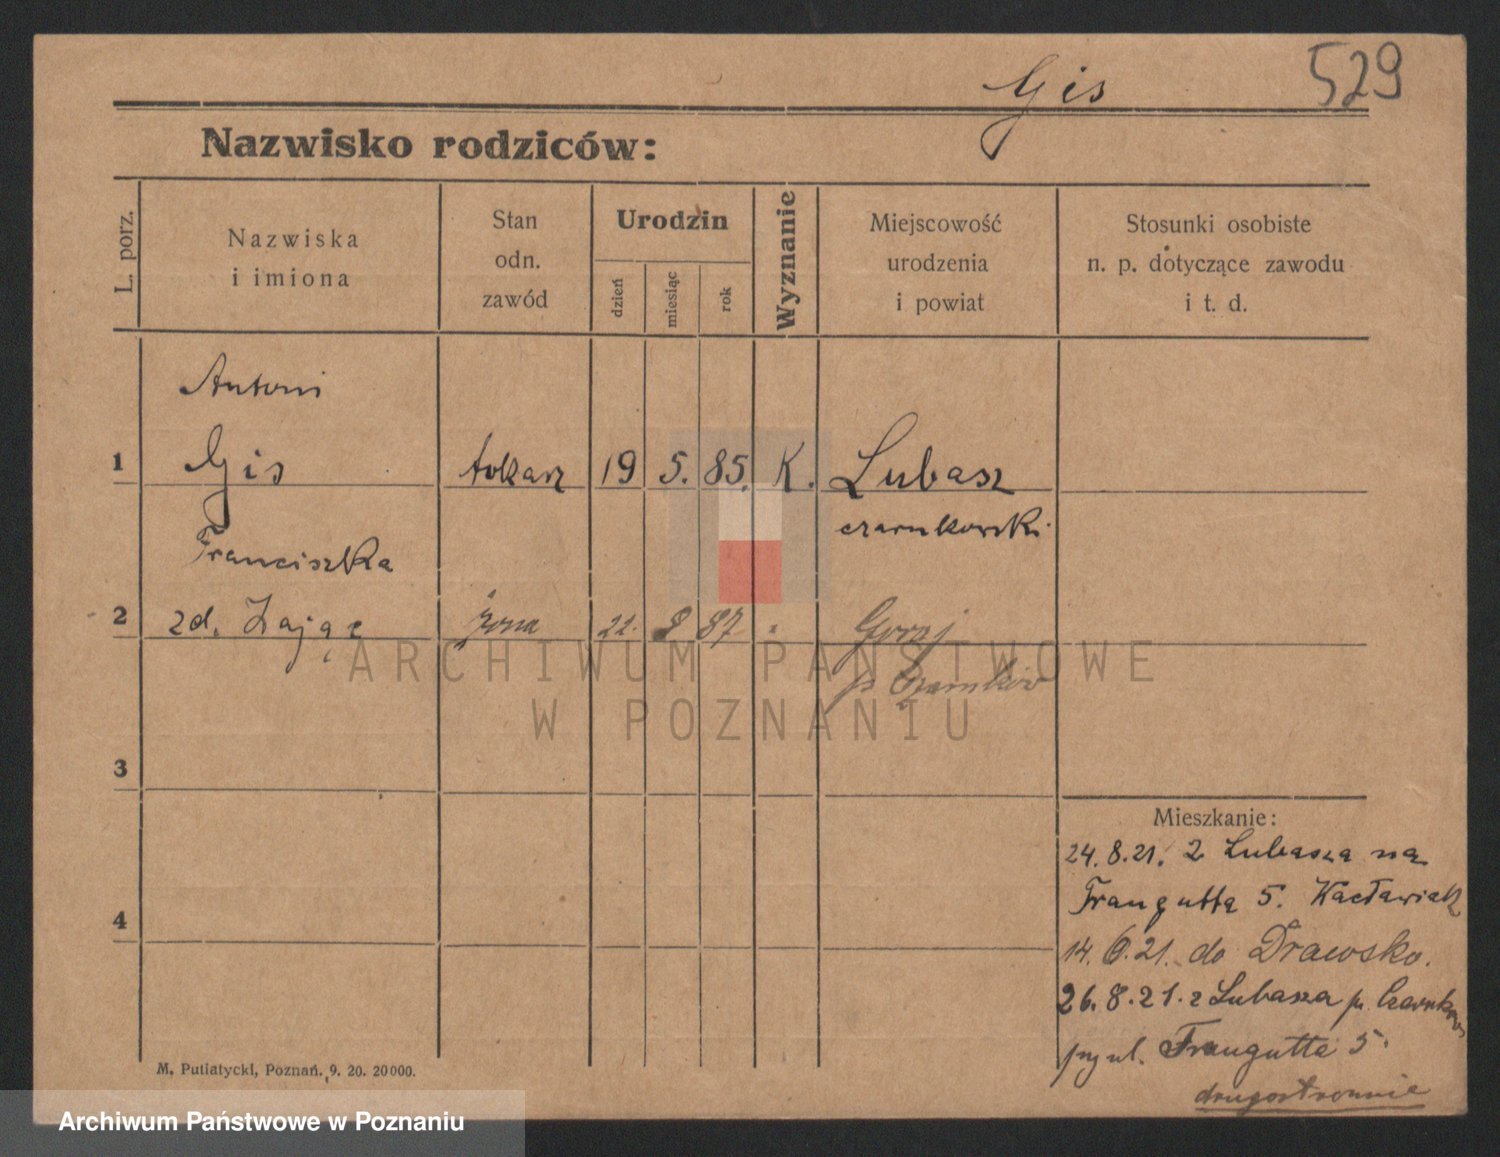 Gis
529
Nazwisko rodziców:
L. porz.
Nazwiska
i imiona
Stan
odn.
zawód
Urodzin
dzień
miesiąc
rok
Wyznanie
Miejscowość
urodzenia
i powiat
Stosunki osobiste
n. p. dotyczące zawodu
i t. d.
Antoni
1 Gis tokarz 19 5. 85. K. Lubasz
czarnkowski
Franciszka
2 zd. Zając żona 22. 8 87 Goraj
p. Czarnków
3
4
Mieszkanie:
24.8.21. z Lubasza na
Traugutta 5. Kacławiak
14.6.21. do Drawsko.
26.8.21. z Lubasza p. Czarnków
przy ul. Traugutta 5.
drugostronnie
M. Putiatycki, Poznań. 9. 20. 20000.
ARCHIWUM PAŃSTWOWE
W POZNANIU
Archiwum Państwowe w Poznaniu